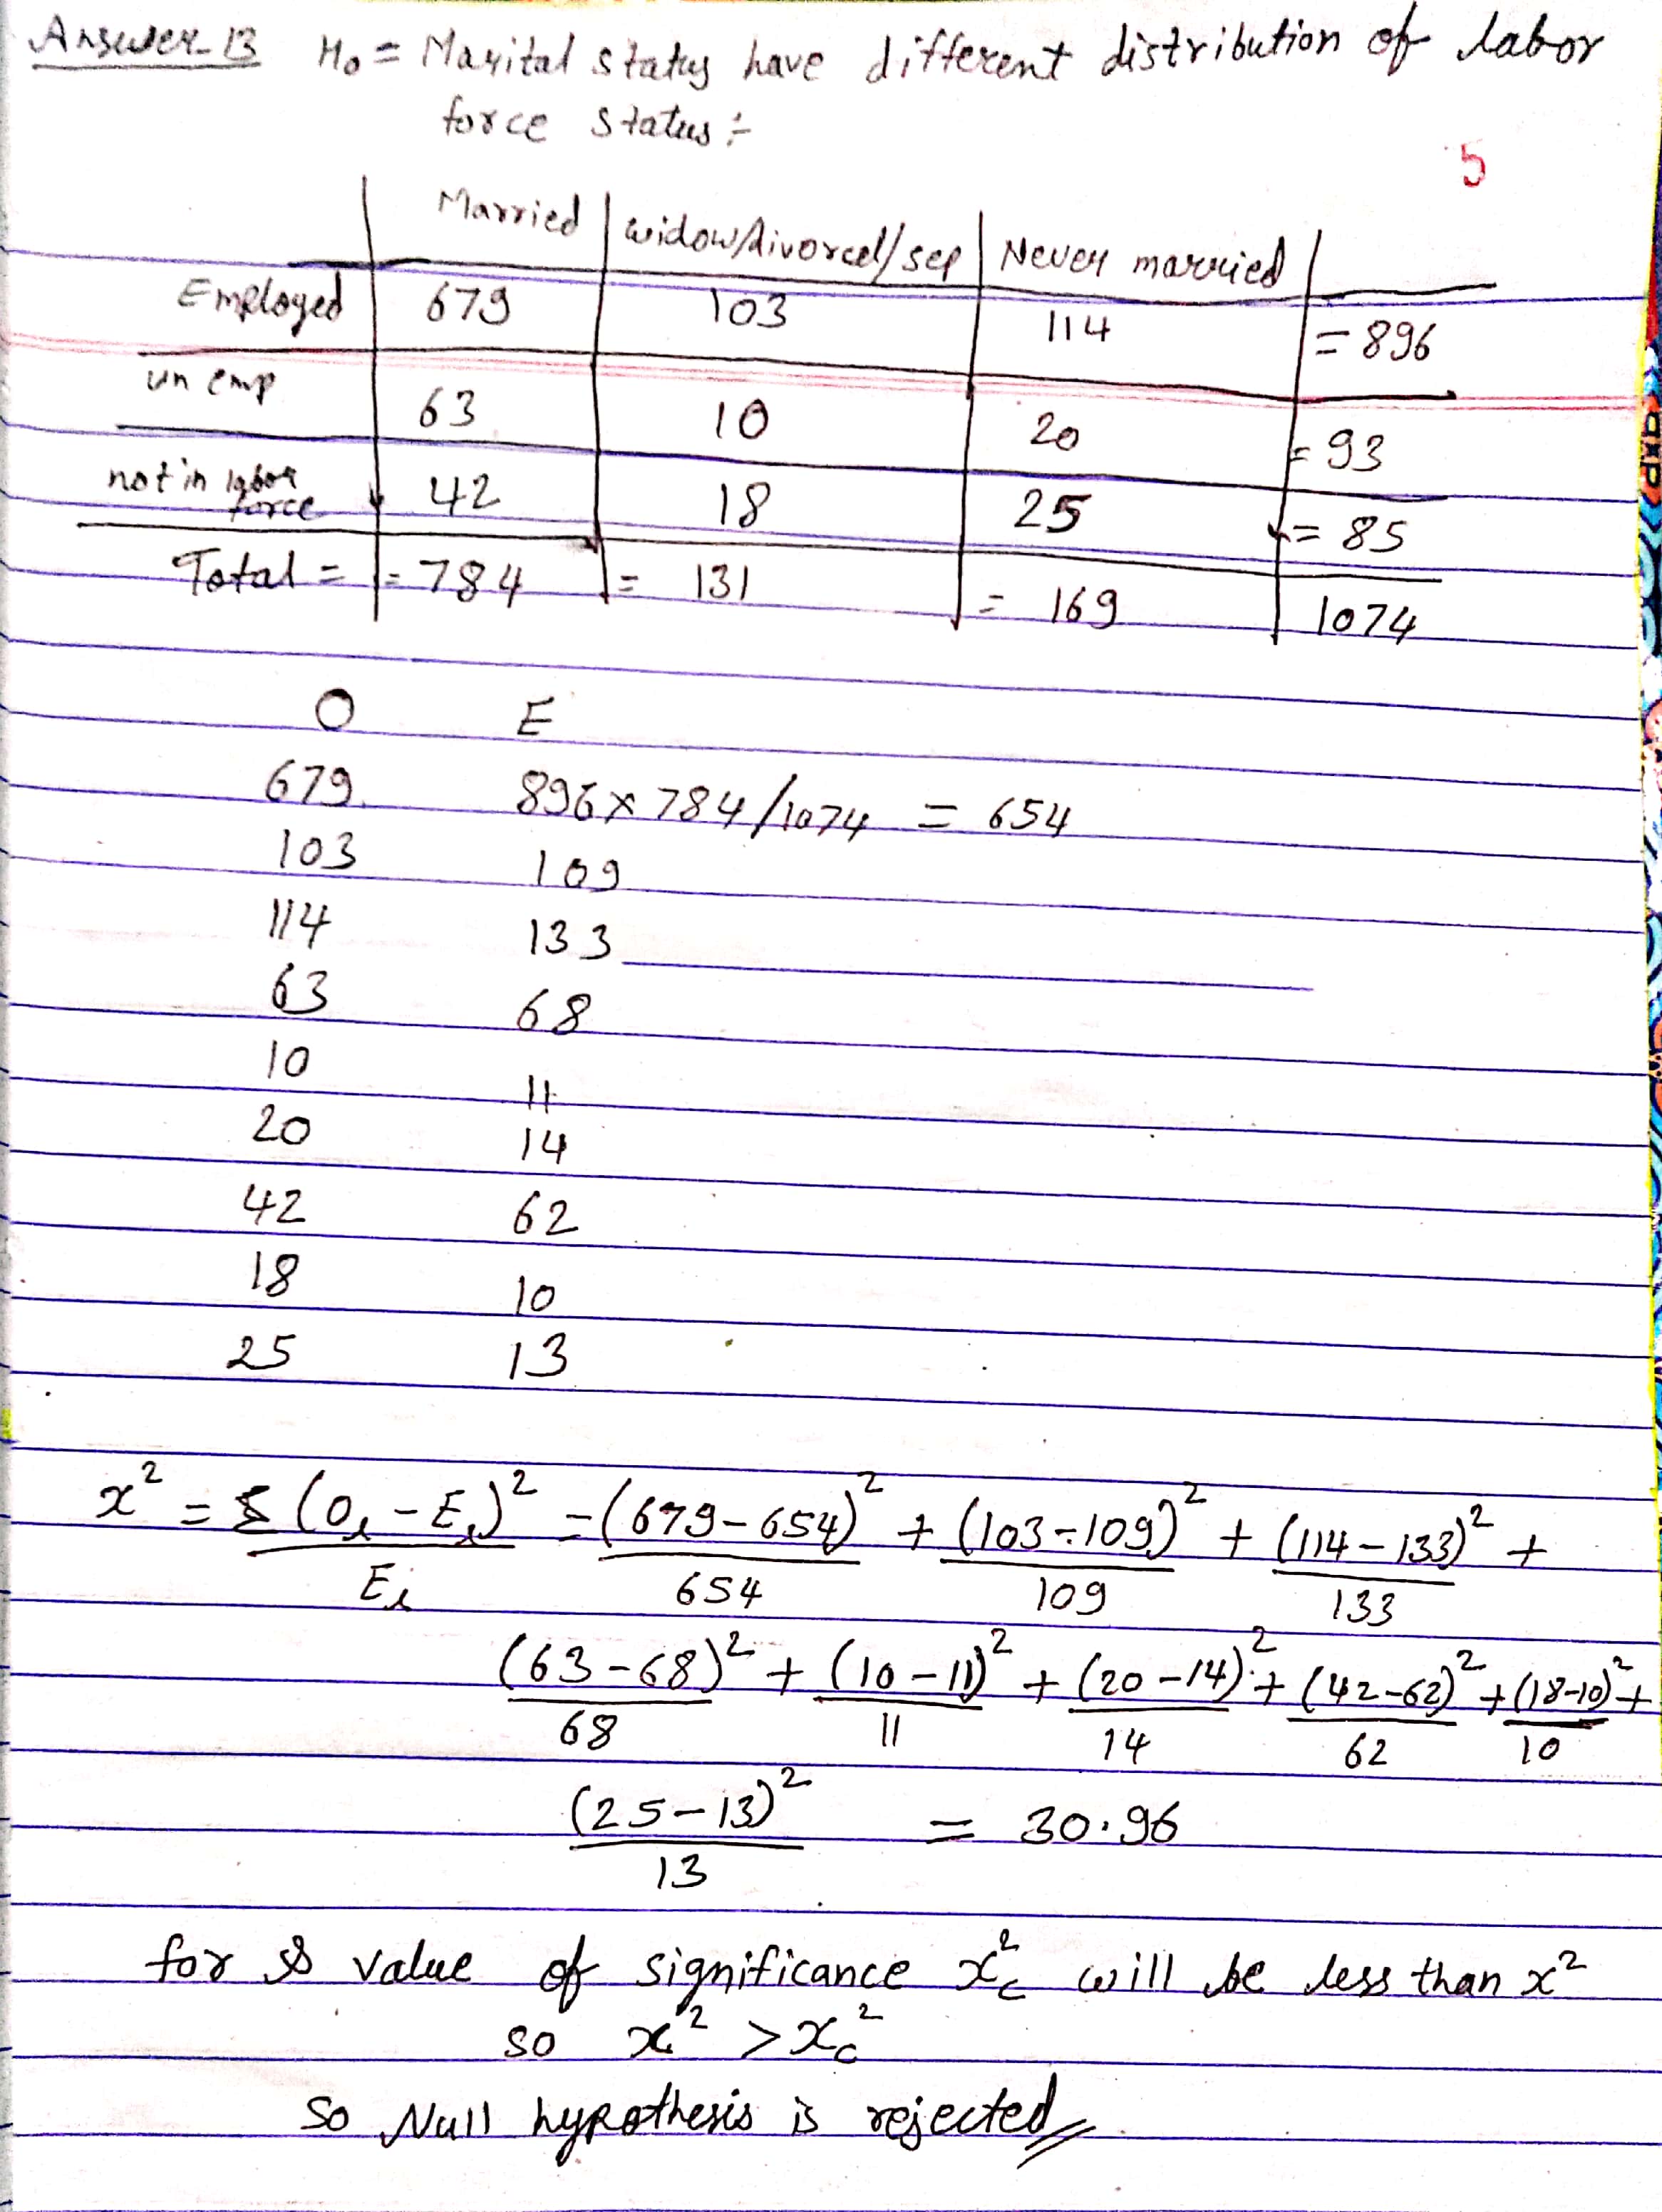 Answer 13 H₀ = Marital status have different distribution of labor
force status :-
5
Married | widow/divorced/sep | Never married |
Employed | 679 | 103 | 114 | = 896
un emp | 63 | 10 | 20 | = 93
not in labor force | 42 | 18 | 25 | = 85
Total = | = 784 | = 131 | = 169 | 1074
O E
679 896 x 784/1074 = 654
103 109
114 133
63 68
10 11
20 14
42 62
18 10
25 13
x² = Σ (Oᵢ - Eᵢ)² / Eᵢ = (679-654)² / 654 + (103-109)² / 109 + (114-133)² / 133 +
(63-68)² / 68 + (10-11)² / 11 + (20-14)² / 14 + (42-62)² / 62 + (18-10)² / 10 +
(25-13)² / 13 = 30.96
for value of significance x²c will be less than x²
so x² > x²c
so Null hypothesis is rejected